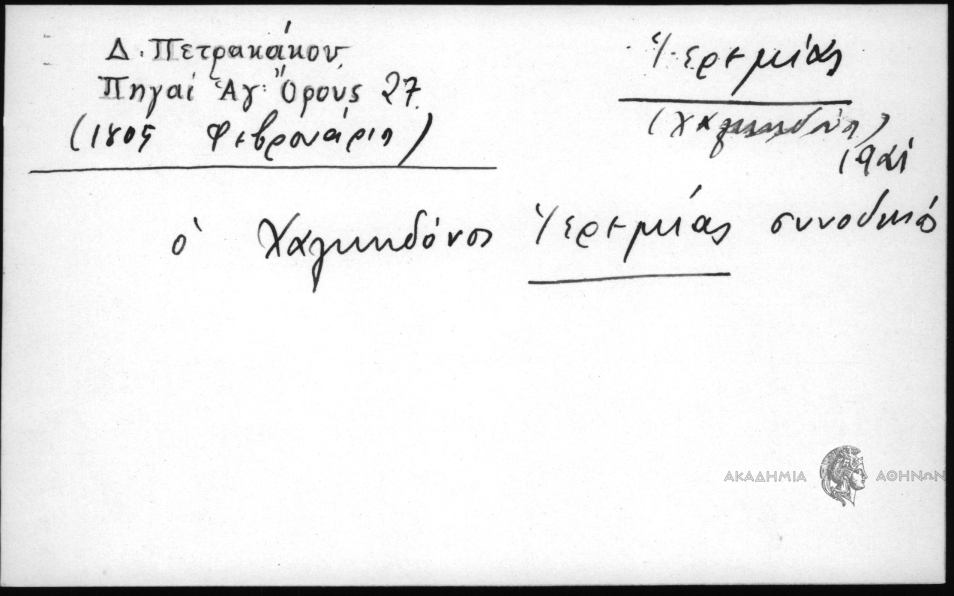 Δ. Πετρακάκου
Πηγαί Ἁγ. Ὄρους 27
(1805 Φεβρουάριο)
Ἱερεμίας
(Χαλκηδόνος)
ὁ Χαλκηδόνος Ἱερεμίας συνοδικός
ΑΚΑΔΗΜΙΑ ΑΘΗΝΩΝ